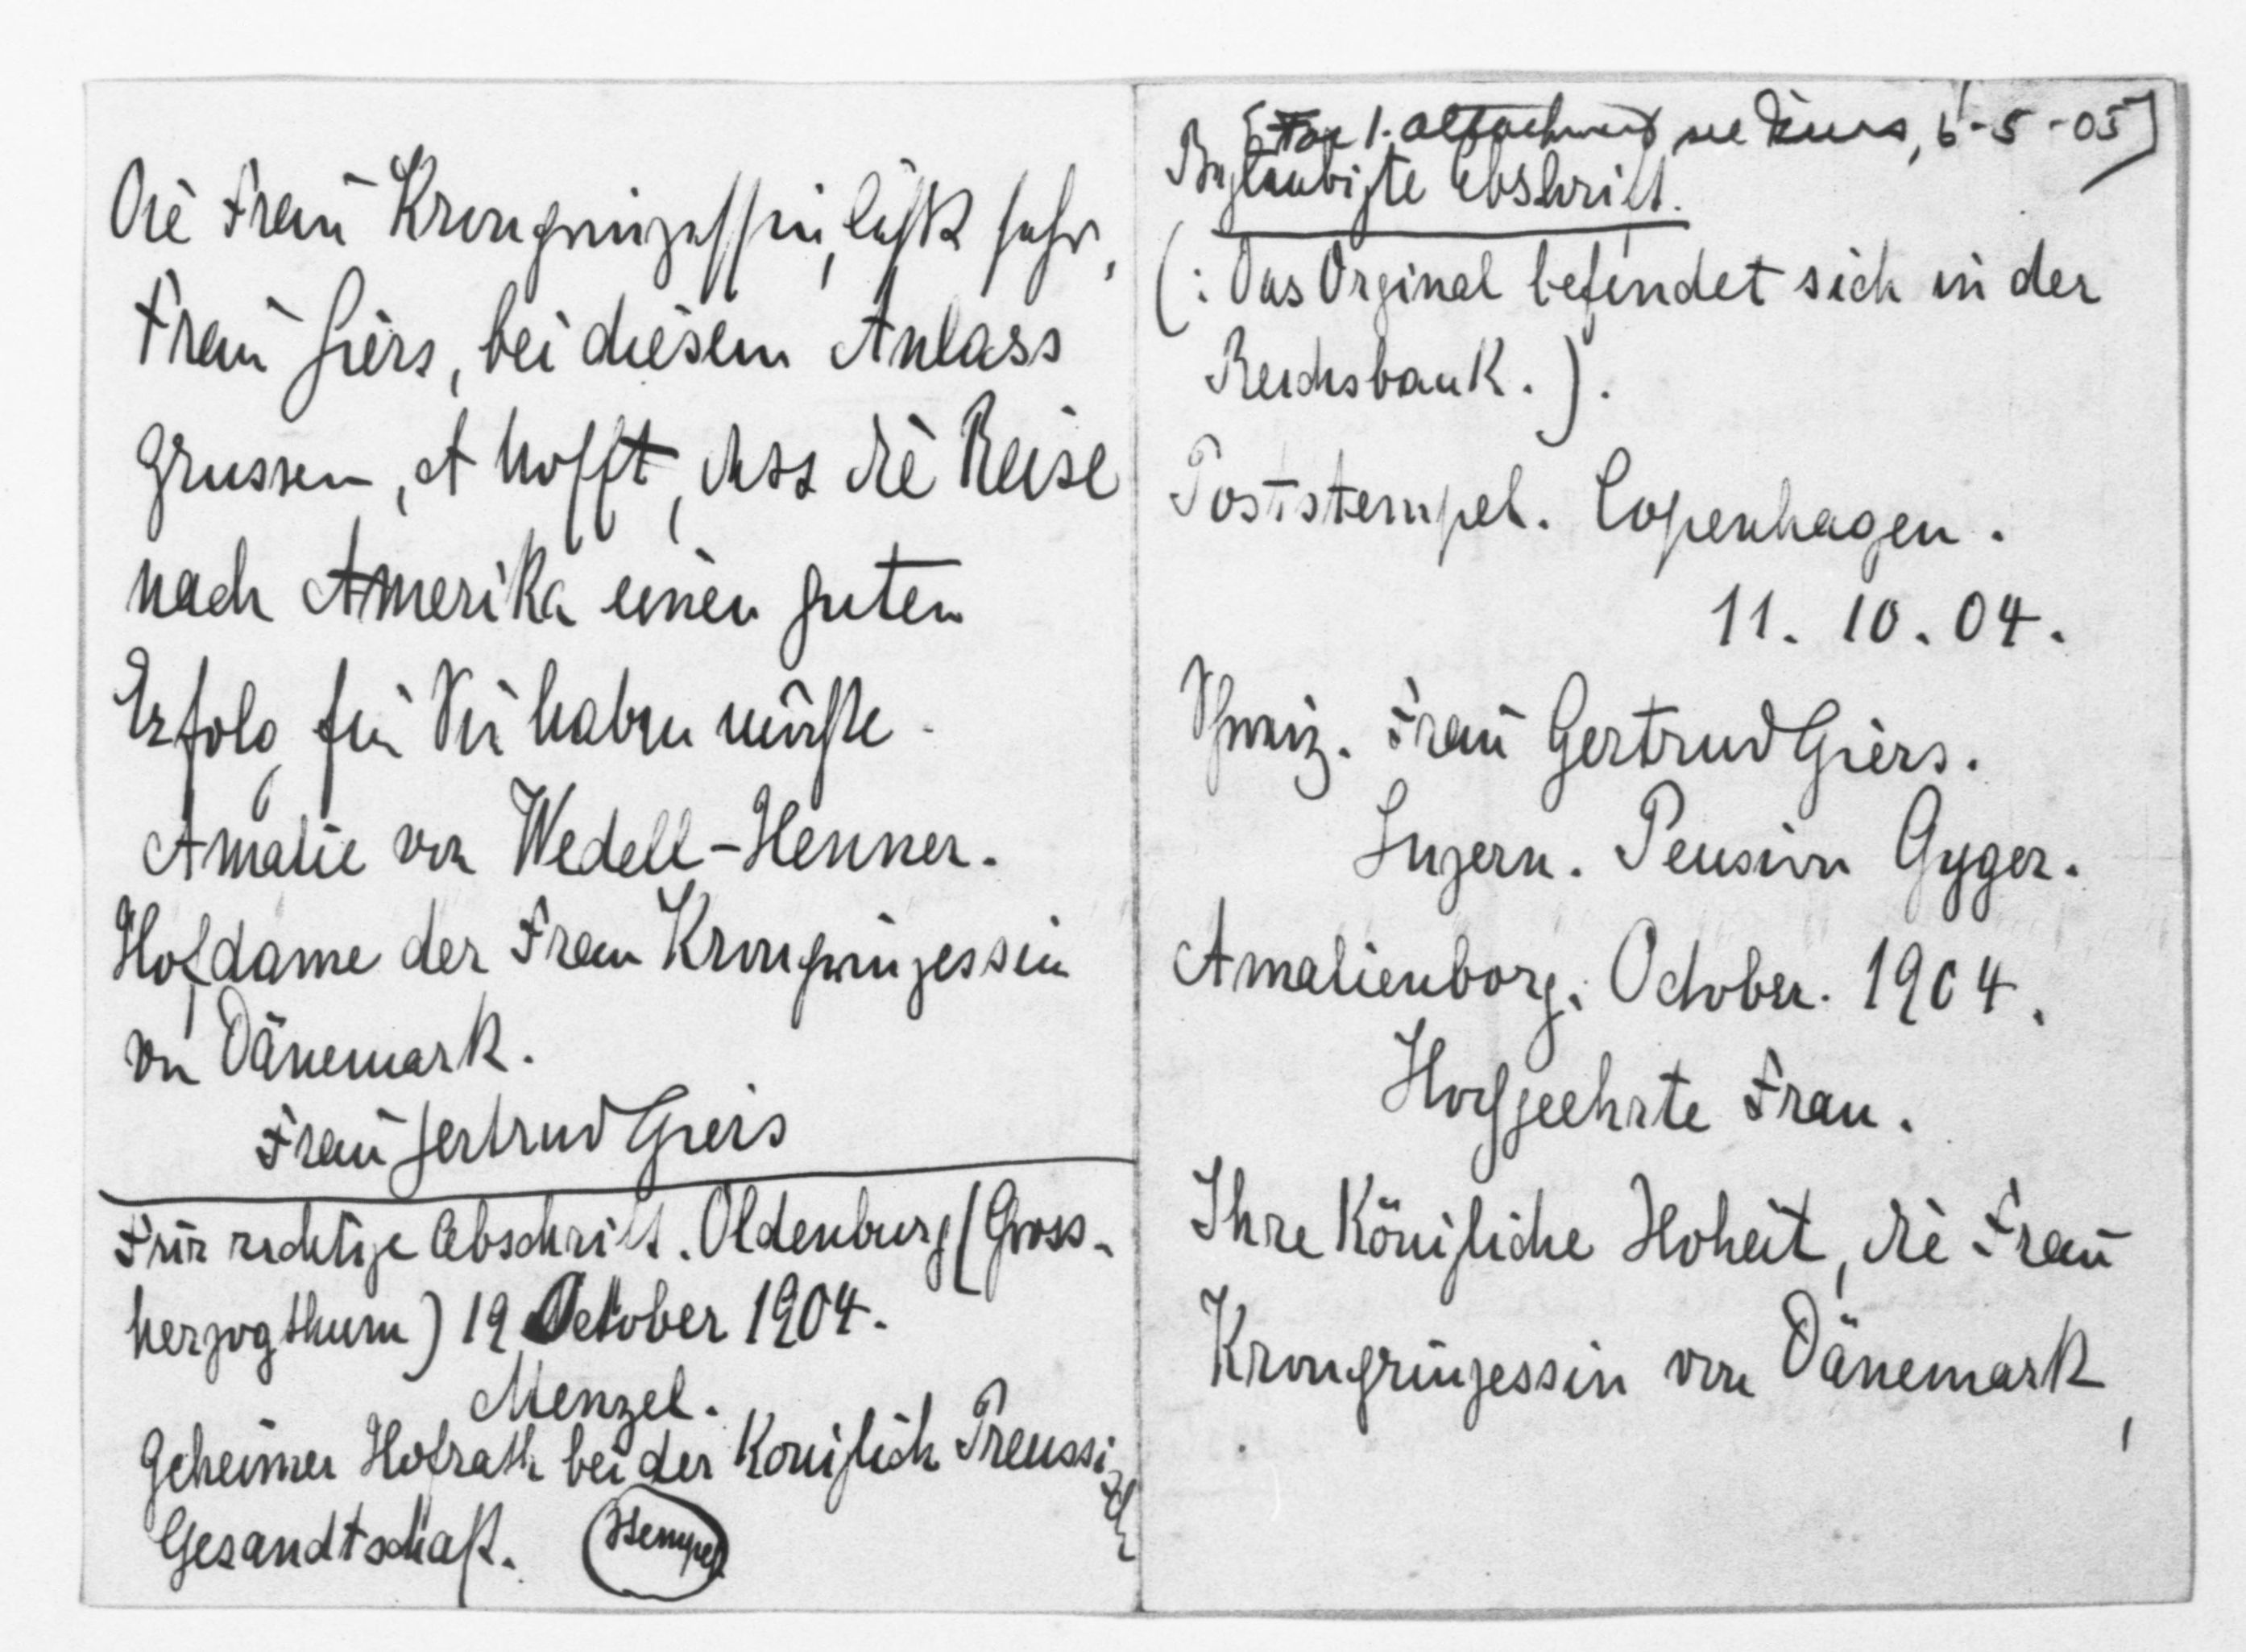 [For 1. attachment see Diners, 6-5-05]
Beglaubigte Abschrift.
(: Das Orginal befindet sich in der
Reichsbank.).
Poststempel. Copenhagen.
11. 10. 04.
Schweiz. Frau Gertrud Giers.
Luzern. Pension Gyger.
Amalienborg. October. 1904.
Hochgeehrte Frau.
Ihre Königliche Hoheit, die Frau
Kronprinzessin von Dänemark,
Die Frau Kronprinzessin, läßt sehr,
Frau Giers, bei diesem Anlass
grussen, et hofft, dass die Reise
nach Amerika einen guten
Erfolg für Sie haben müßte.
Amalie von Wedell-Henner.
Hofdame der Frau Kronprinzessin
von Dänemark.
Frau Gertrud Giers
Für richtige Abschrift. Oldenburg (Gross-
herzogthum) 19 October 1904.
Menzel.
Geheimer Hofrath bei der Königlich Preussischen
Gesandtschaft. Stempel